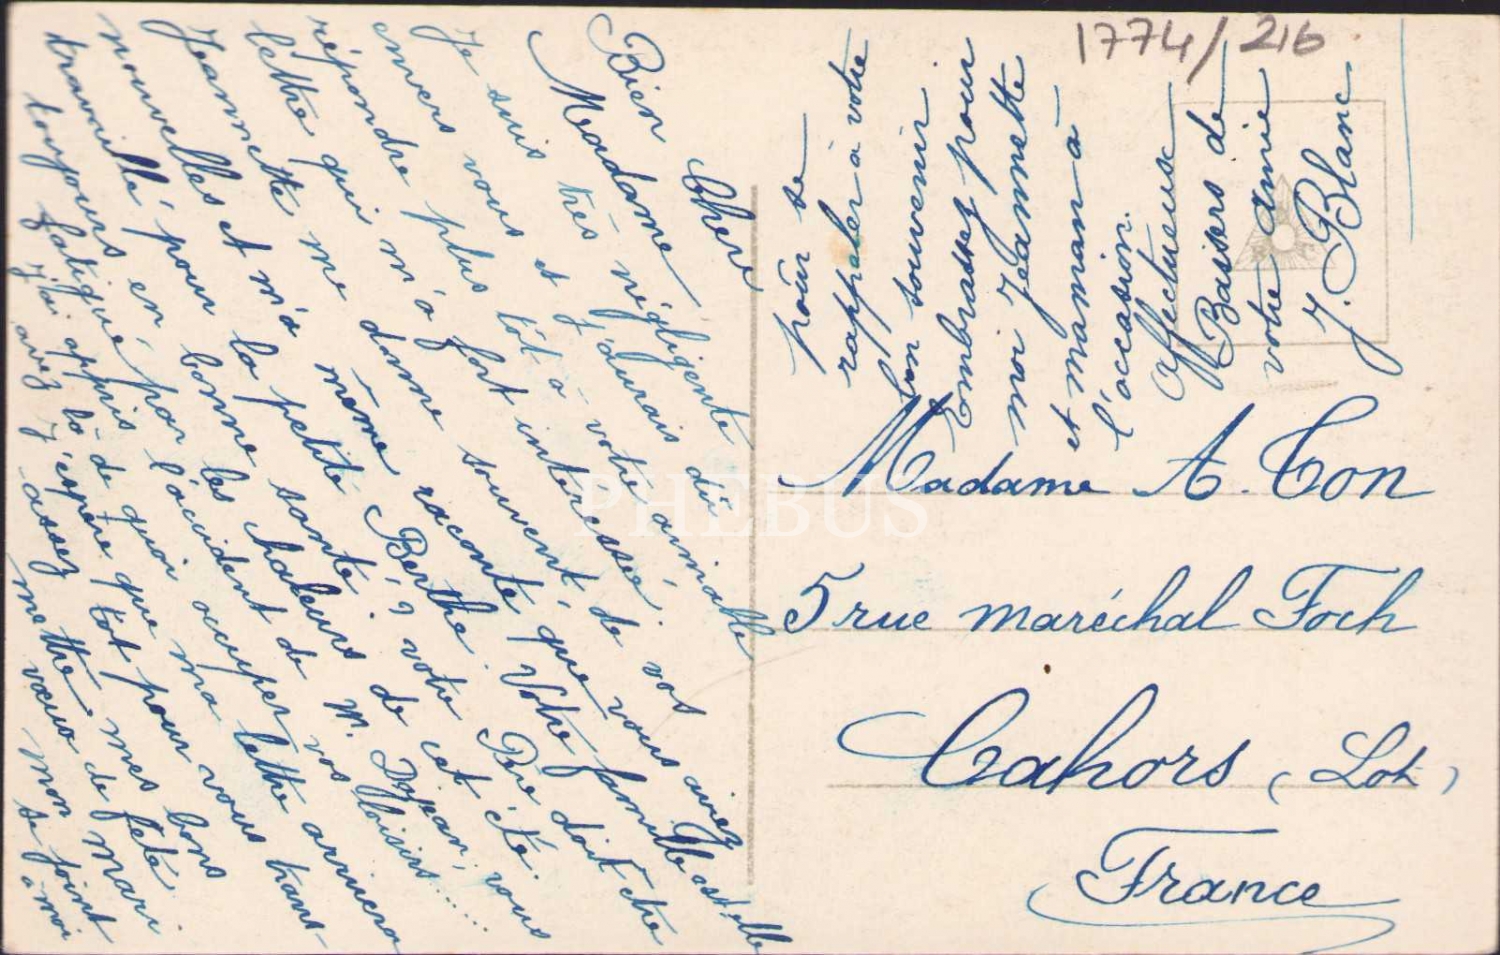 Bien Chère
Madame,
Je suis très négligente
envers vous et j'aurais dû
répondre plus tôt à votre aimable
lettre qui m'a fort intéressée.
Jeannette me donne souvent de vos
nouvelles et m'a même raconté que vous aviez
travaillé pour la petite Berthe. Votre famille est-elle
toujours en bonne santé ? votre Père doit être
fatigué par les chaleurs de cet été.
J'ai appris l'accident de M. Dejean, vous
avez là de quoi occuper vos loisirs....
J'espère que ma lettre arrivera
assez tôt pour vous trans-
mettre mes bons
vœux de fête.
mon mari
se joint
à moi
pour se
rappeler à votre
bon souvenir.
Embrassez pour
moi Jeannette
et maman à
l'occasion.
Affectueux
Baisers de
votre amie
J. Blanc
1774/216
Madame A. Ton
5 rue maréchal Foch
Cahors (Lot)
France
PHEBUS